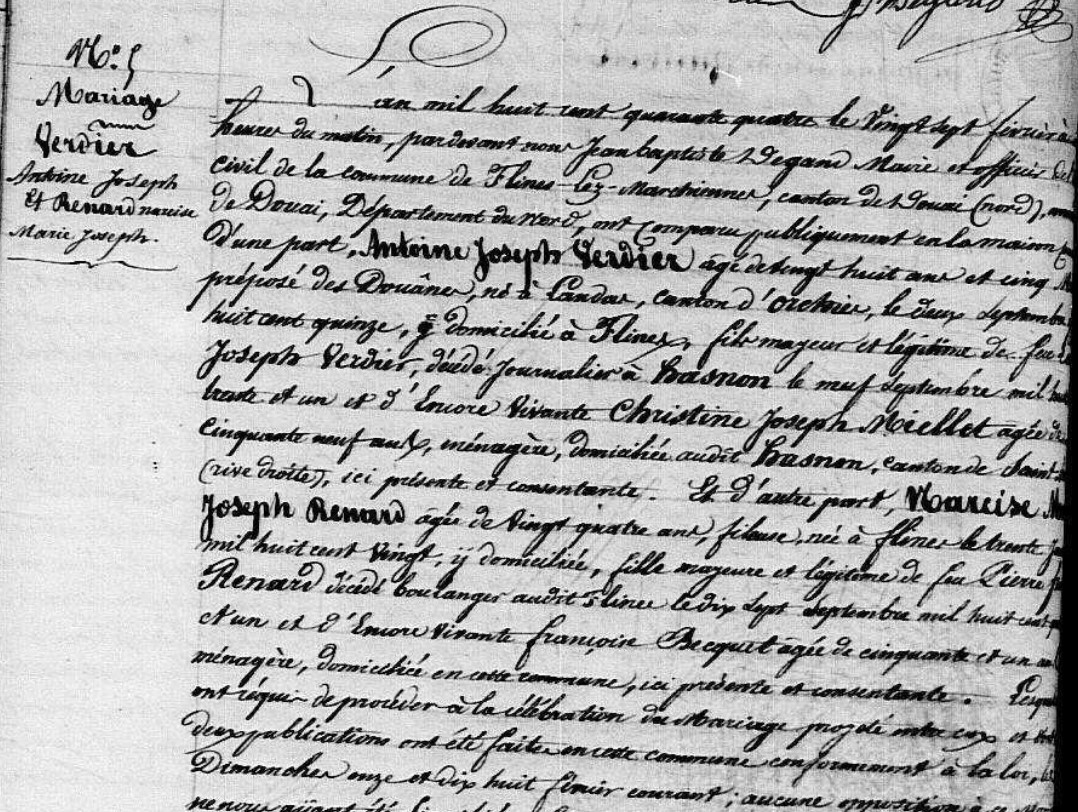 N.° 5
Mariage
Verdier
Antoine Joseph
Et Renard narcise
Marie Joseph.
L'an mil huit cent quarante quatre le Vingt sept fevrier à
heures du matin, pardevant nous Jean baptiste Degand Maire et officier de l'
civil de la commune de Flines-Lez-Marchiennes, canton de Douai (nord),
de Douai, Département du Nord, ont comparu publiquement en la maison
D'une part, Antoine Joseph Verdier agé de vingt huit ans et cinq
préposé des Douânes, né à Landas, canton d'Orchies, le deux Septembre
huit cent quinze, y domicilié à Flines, fils majeur et légitime de feu
Joseph Verdier, décédé Journalier à hasnon le neuf Septembre mil huit
trente et un et d'Encore Vivante Christine Joseph Miellet agée de
Cinquante neuf ans, ménagère, domiciliée audit hasnon, canton de Saint
(rive droite), ici présente et consentante. Et d'autre part, Narcise
Joseph Renard agée de Vingt quatre ans, fileuse, née à flines le trente
mil huit cent Vingt, y domiciliée, fille majeure et légitime de feu Pierre
Renard décédé boulanger audit Flines le dix sept Septembre mil huit cent
et un et d'Encore Vivante françoise Becquet agée de cinquante et un
ménagère, domiciliée en cette commune, ici présente et consentante.
ont réquis de procéder à la célébration du Mariage projeté entre eux et
deux publications ont été faites en cette commune conformement à la loi,
Dimanches onze et dix huit fevrier courant; aucune opposition
ne nous ayant été